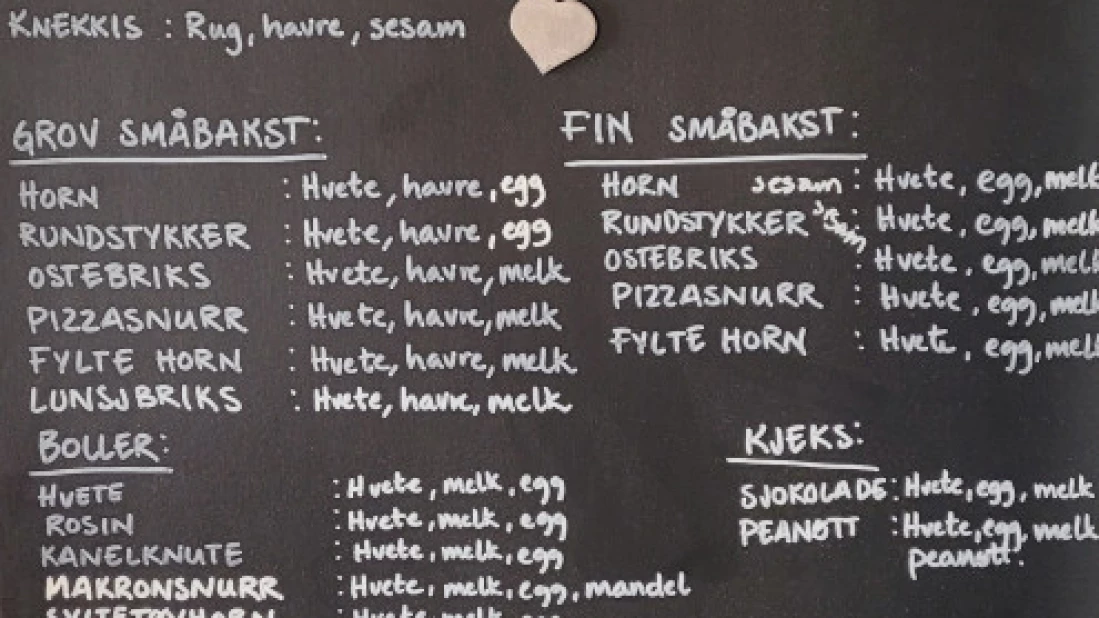 KNEKKIS : Rug, havre, sesam
GROV SMÅBAKST:
HORN : Hvete, havre, egg
RUNDSTYKKER : Hvete, havre, egg
OSTEBRIKS : Hvete, havre, melk
PIZZASNURR : Hvete, havre, melk
FYLTE HORN : Hvete, havre, melk
LUNSJBRIKS : Hvete, havre, melk
FIN SMÅBAKST:
HORN sesam : Hvete, egg, melk
RUNDSTYKKER sesam : Hvete, egg, melk
OSTEBRIKS : Hvete, egg, melk
PIZZASNURR : Hvete, egg, melk
FYLTE HORN : Hvete, egg, melk
BOLLER:
HVETE : Hvete, melk, egg
ROSIN : Hvete, melk, egg
KANELKNUTE : Hvete, melk, egg
MAKRONSNURR : Hvete, melk, egg, mandel
: Hvete, melk, egg
KJEKS:
SJOKOLADE : Hvete, egg, melk
PEANØTT : Hvete, egg, melk
peanøtt.